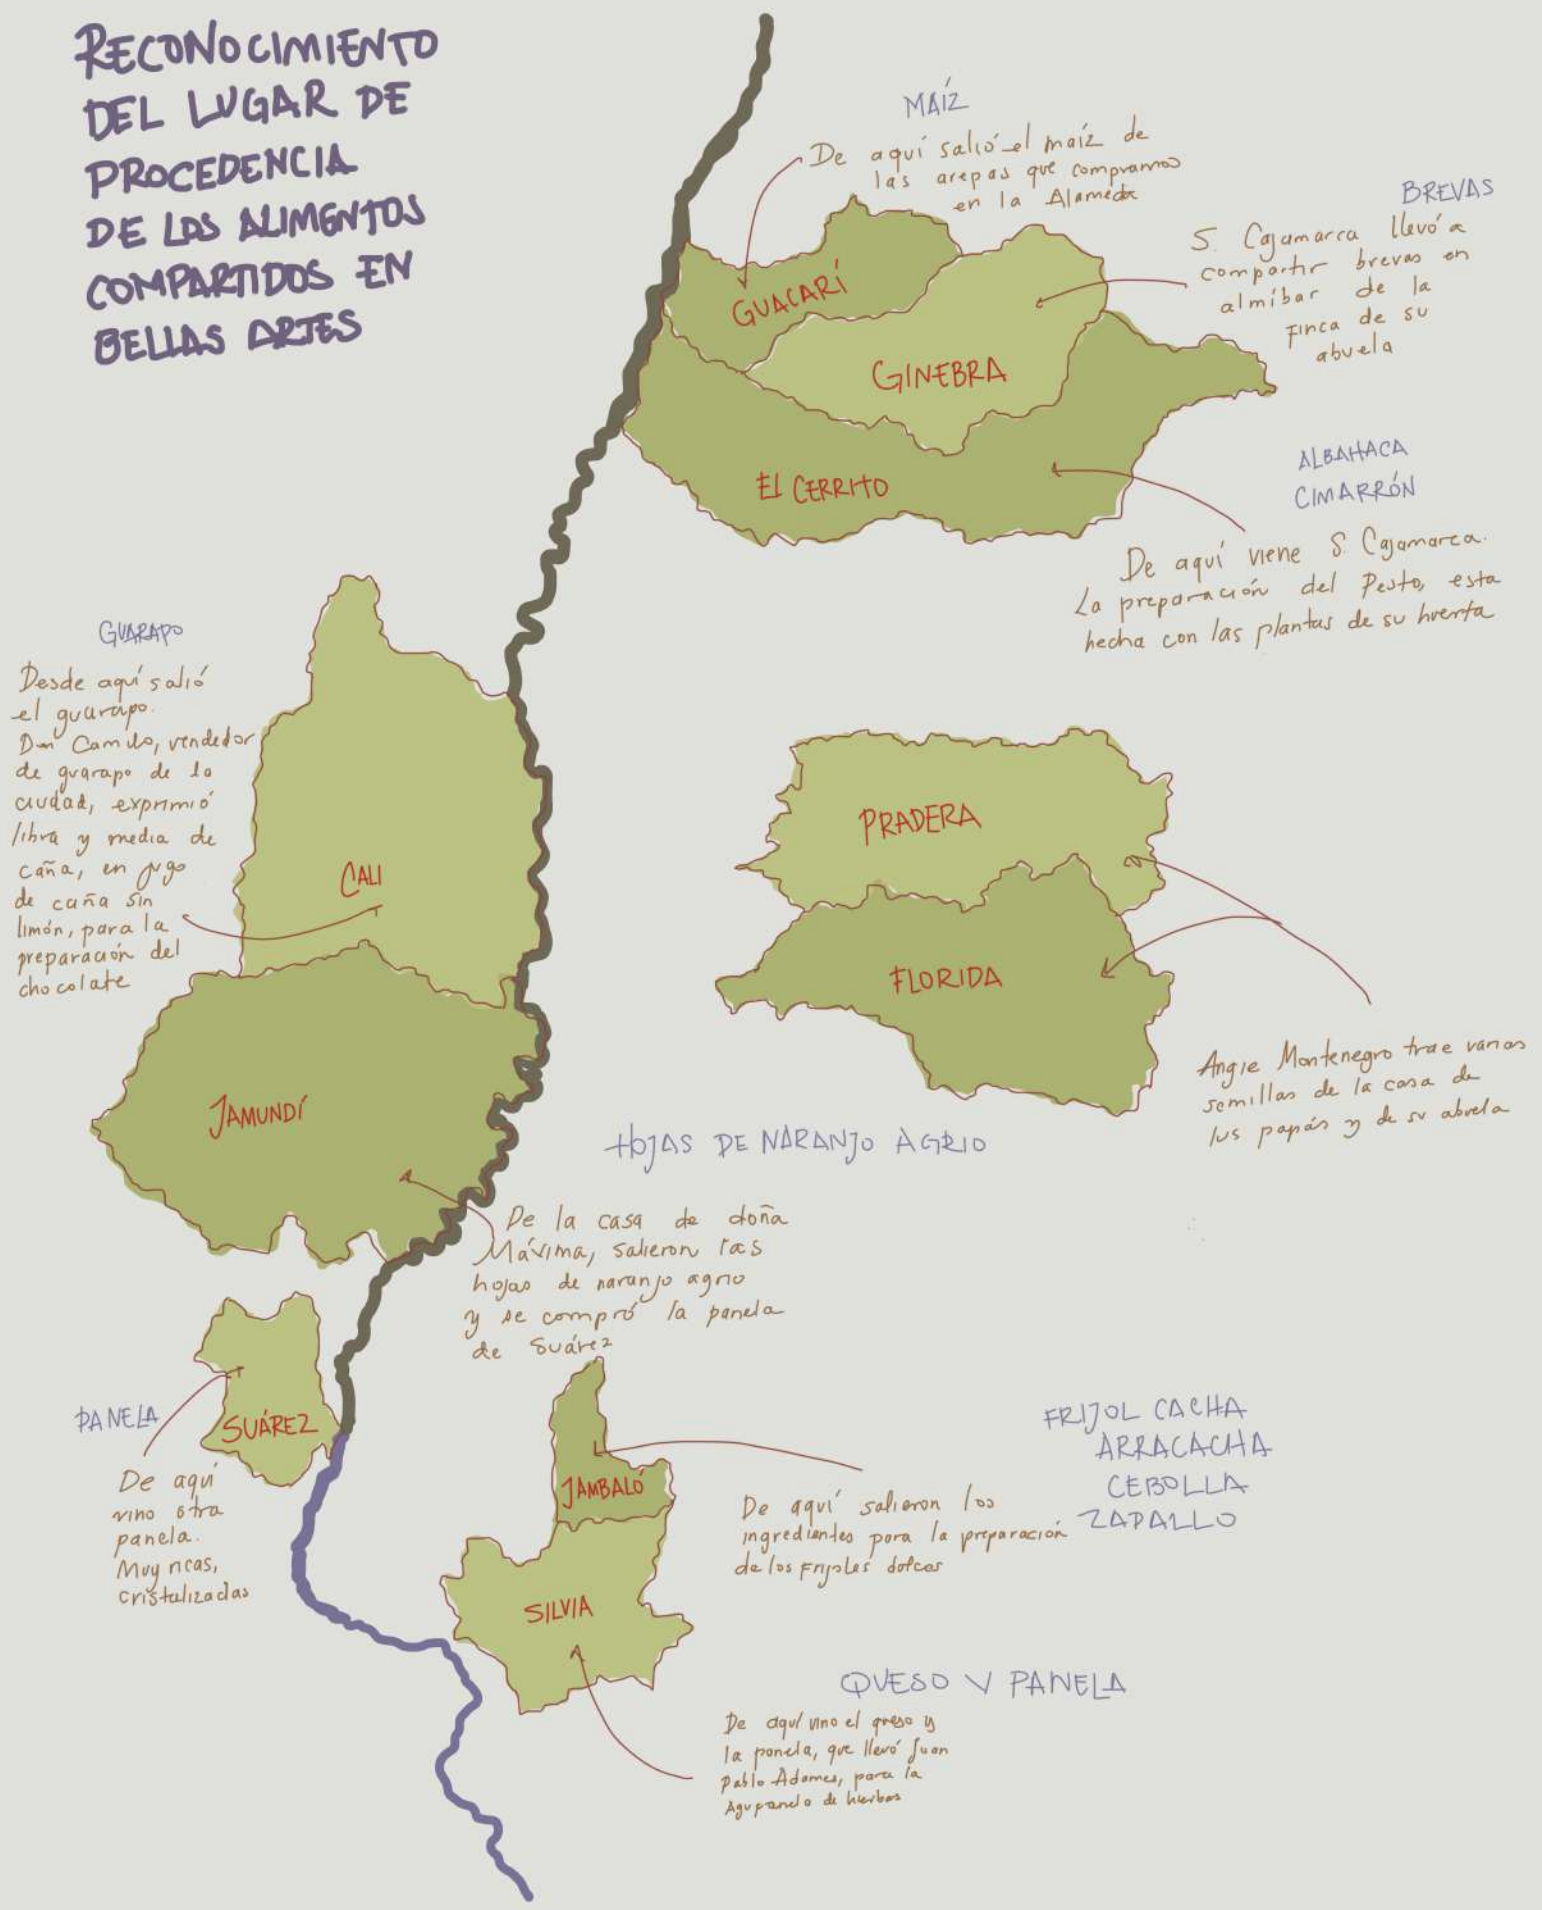 RECONOCIMIENTO
DEL LUGAR DE
PROCEDENCIA
DE LOS ALIMENTOS
COMPARTIDOS EN
BELLAS ARTES
MAÍZ
De aquí salió el maíz de
las arepas que compramos
en la Alameda
BREVAS
S. Cajamarca llevó a
compartir brevas en
almíbar de la
Finca de su
abuela
GUACARÍ
GINEBRA
EL CERRITO
ALBAHACA
CIMARRÓN
De aquí viene S. Cajamarca.
La preparación del Pesto, esta
hecha con las plantas de su huerta
GUARAPO
Desde aquí salió
el guarapo.
Don Camilo, vendedor
de guarapo de la
ciudad, exprimió
libra y media de
caña, en jugo
de caña sin
limón, para la
preparación del
chocolate
CALI
PRADERA
FLORIDA
Angie Montenegro trae varias
semillas de la casa de
lus papás y de su abuela
JAMUNDÍ
HOJAS DE NARANJO AGRIO
De la casa de doña
Máxima, salieron las
hojas de naranjo agrio
y se compró la panela
de Suárez
PANELA
SUÁREZ
De aquí
vino otra
panela.
Muy ricas,
cristalizadas
JAMBALÓ
FRIJOL CACHA
ARRACACHA
CEBOLLA
ZAPALLO
De aquí salieron los
ingredientes para la preparación
de los Frijoles dolcas
SILVIA
QUESO Y PANELA
De aquí vino el queso y
la panela, que llevó Juan
Pablo Adames, para la
Agupanela de hierbas